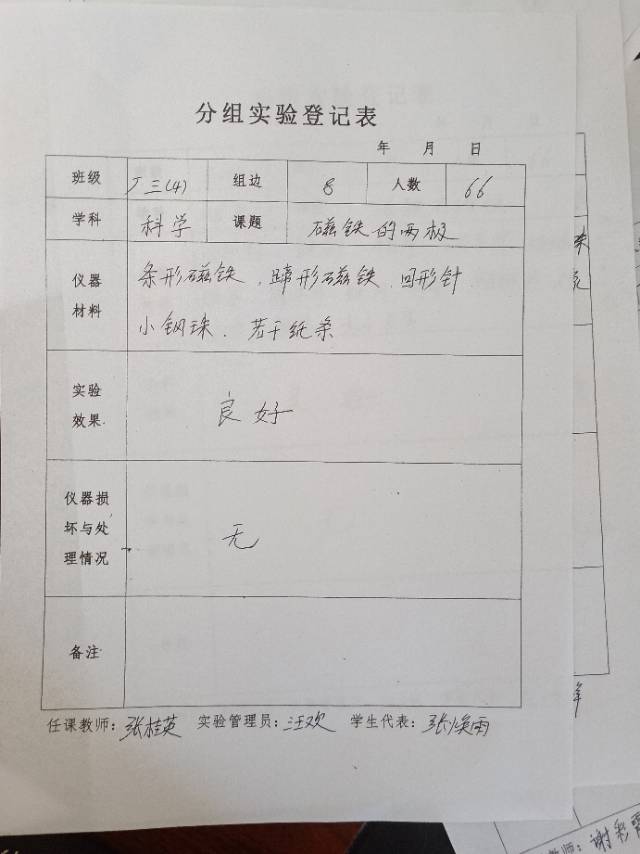 分组实验登记表
年 月 日
班级 三(4) 组边 8 人数 66
学科 科学 课题 磁铁的两极
仪器 条形磁铁、蹄形磁铁、回形针
材料 小钢珠、若干纸条
实验
效果 良好
仪器损
坏与处 无
理情况
备注
任课教师：张桂英 实验管理员：汪欢 学生代表：张焕雨
师：谢彩霞